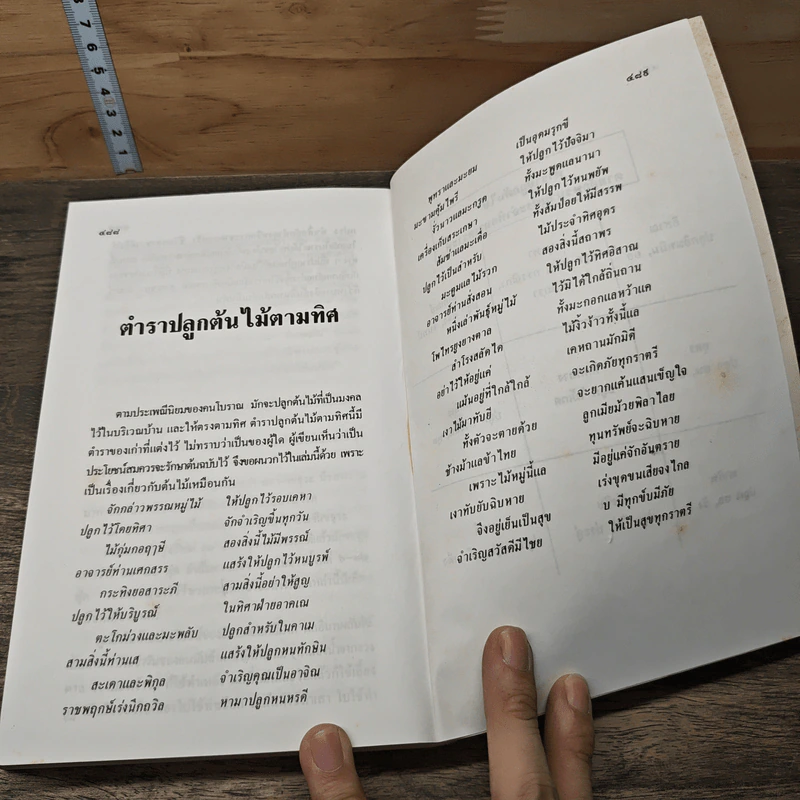 ๔๘๘
ตำราปลูกต้นไม้ตามทิศ
ตามประเพณีนิยมของคนโบราณ มักจะปลูกต้นไม้ที่เป็นมงคล
ไว้ในบริเวณบ้าน และให้ตรงตามทิศ ตำราปลูกต้นไม้ตามทิศนี้มี
ตำราของเก่าที่แต่งไว้ ไม่ทราบว่าเป็นของผู้ใด ผู้เขียนเห็นว่าเป็น
ประโยชน์สมควรจะรักษาต้นฉบับไว้ จึงขอผนวกไว้ในเล่มนี้ด้วย เพราะ
เป็นเรื่องเกี่ยวกับต้นไม้เหมือนกัน
จักกล่าวพรรณหมู่ไม้ ให้ปลูกไว้รอบเคหา
ปลูกไว้โดยทิศา จักจำเริญขึ้นทุกวัน
ไม้กุ่มกอฤๅษี สองสิ่งนี้ไม้มีพรรณ์
อาจารย์ท่านเศกสรร แสร้งให้ปลูกไว้หนบูรพ์
กระทิงยอสาระภี สามสิ่งนี้อย่าให้สูญ
ปลูกไว้ให้บริบูรณ์ ในทิศาฝ่ายอาคเณ
ตะโกม่วงและมะพลับ ปลูกสำหรับในคาเม
สามสิ่งนี้ท่านเส แสร้งให้ปลูกหนทักษิน
สะเดาและพิกุล จำเริญคุณเป็นอาจิณ
ราชพฤกษ์เร่งนึกถวิล หามาปลูกหนหรดี
๔๘๙
พุทราและมะยม เป็นอุดมรุกชี
มะขามคุ้มไพรี ให้ปลูกไว้ปัจจิมา
งั่วนาวแลมะกรูด ทั้งมะพูดแลนานา
เครื่องเก็บสระเกษา ให้ปลูกไว้หนพยัพ
ส้มซ่าแลมะเดื่อ ทั้งส้มป่อยให้มีสรรพ
ปลูกไว้เป็นสำหรับ ไม้ประจำทิศอุดร
มะตูมแลไม้รวก สองสิ่งนี้สถาพร
อาจารย์ท่านสั่งสอน ให้ปลูกไว้ทิศอิสาณ
หนึ่งเล่าพันธุ์หมู่ไม้ ไว้มิได้ใกล้ถิ่นถาน
โพไทรยูงยางตาล ทั้งมะกอกแลหว้าแค
สำโรงสลัดได ไม้งิ้วง้าวทั้งนี้แล
อย่าไว้ให้อยู่แค่ เคหถานมักมิดี
แม้นอยู่ที่ใกล้ใกล้ จะเกิดภัยทุกราตรี
เงาไม้มาทับยี จะยากแค้นแสนเข็ญใจ
ทั้งตัวจะตายด้วย ลูกเมียม้วยพิลาไลย
ช้างม้าแลข้าไทย ทุนทรัพย์จะฉิบหาย
เพราะไม้หมู่นี้แล มีอยู่แค่จักอันตราย
เงาทับยับฉิบหาย เร่งขุดขนเสียจงไกล
จึงอยู่เย็นเป็นสุข บ มีทุกข์บมีภัย
จำเริญสวัสดีมีไชย ให้เป็นสุขทุกราตรี